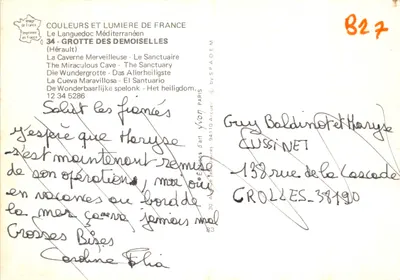 COULEURS ET LUMIERE DE FRANCE
Le Languedoc Méditerranéen
34 - GROTTE DES DEMOISELLES
(Hérault)
La Caverne Merveilleuse - Le Sanctuaire
The Miraculous Cave - The Sanctuary
Die Wundergrotte - Das Allerheiligste
La Cueva Maravillosa - El Santuario
De Wonderbaarlijke spelonk - Het heiligdom.
12 34 5286
B27
Salut les fiancés
j'espère que Maryse
s'est maintenant remise
de son opération, moi oui
en vacances au bord de
la mer ça va jamais mal
Grosses Bises
Caroline
Guy Baldinot et Maryse
CUSSINET
138 rue de la Cascade
CROLLES 38190